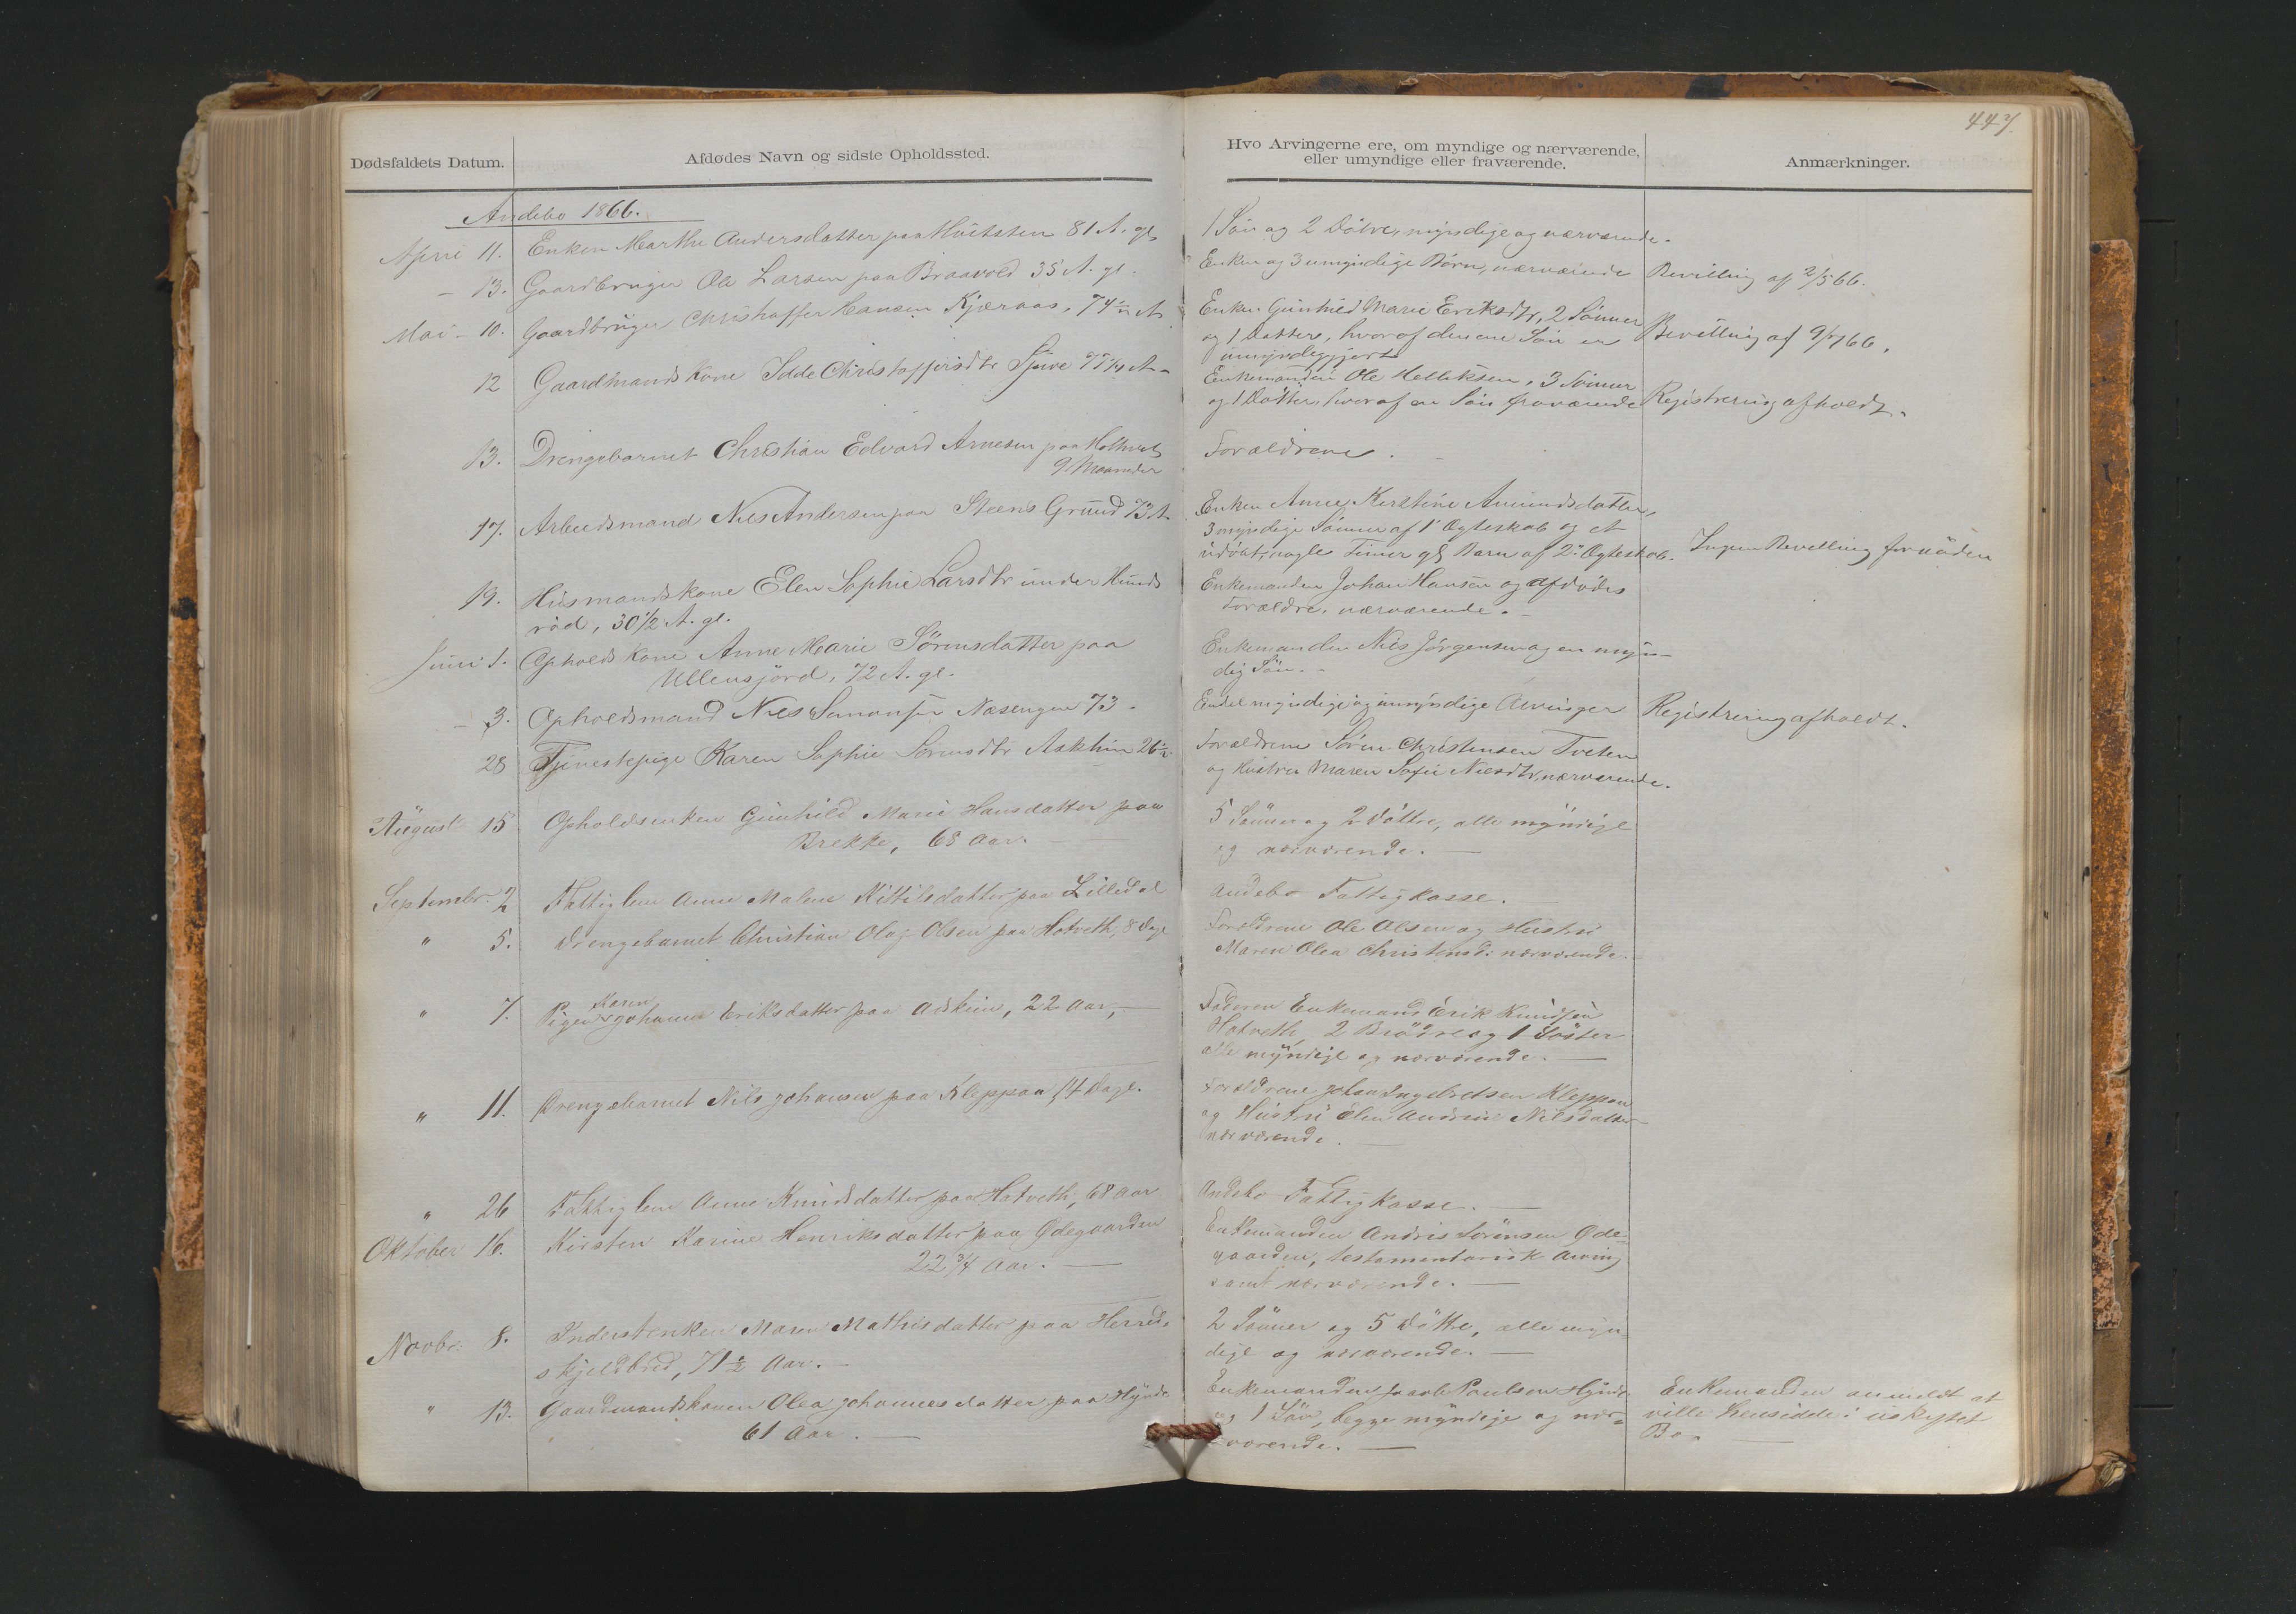 447.
Dødsfaldets Datum.
Afdødes Navn og sidste Opholdssted.
Hvo Arvingerne ere, om myndige og nærværende,
eller umyndige eller fraværende.
Anmærkninger.
Andebo 1866.
April 11. Enken Marthe Andersdatter paa Hvitsten 81 A. gl.
1 Søn og 2 Døtre, myndige og nærværende.
- 13. Gaardbruger Ole Larsen paa Braavold 35 A. gl.
Enken og 3 umyndige Børn, nærværende
Bevilling af 2/5 66.
Mai - 10. Gaardbruger Christoffer Hansen Kjæraas, 74 1/2 A.
Enken Gunhild Marie Eriksdtr, 2 Sønner
og 1 Datter, hvoraf den ene Søn er
umyndiggjort
Bevilling af 9/7 66.
12 Gaardmandskone Idde Christoffersdtr Sjue A.
Enkemanden Ole Helliksen, 3 Sønner
og 1 Datter, hvoraf en Søn fraværende
Registrering afholdt.
13. Drengebarnet Christian Edvard Arnesen paa
9 Maaneder
Forældrene.
17. Arbeidsmand Nils Andersen paa Steens Grund 73 A.
Enken Anne Kirstine Amundsdatter,
3 myndige Sønner af 1' Ægteskab og et
udøbt, nogle Timer gl. Barn af 2' Ægteskab.
Ingen Bevilling fornöden
19. Husmandskone Elen Sophie Larsdtr under Hunds
röd, 30 1/2 A. gl.
Enkemanden Johan Hansen og afdødes
Forældre, nærværende.
Juni 1. Opholdskone Anne Marie Sörensdatter paa
Ullensjord, 72 A. gl.
Enkemanden Nils Jørgensen og en myn-
dig Søn.
- 3. Opholdsmand Nils Simonsen Nasengen 73.
Endel myndige og umyndige Arvinger
Registrering afholdt.
28 Tjenestepige Karen Sophie Sörensdtr Askhim 26 1/2
Forældrene Sören Christensen Tveten
og Hustru Maren Sofie Nilsdtr, nærværende.
August 15 Opholdsenken Gunhild Marie Hansdatter paa
Brekke, 68 Aar.
5 Sönner og 2 Döttre, alle myndige
og nærværende.
Septembr. 2 Fattiglem Anne Malene Kittilsdatter paa Lilledal
Andebo Fattigkasse.
" 5. Drengebarnet Christian Olaj Olsen paa Hotveth, 8 Dage
Forældrene Ole Olsen og Hustru
Maren Olea Christensd: nærværende.
Karen
" 7. Pigen Johanne Eriksdatter paa Askeim, 22 Aar,
Faderen Enkemand Erik Knudsen
Hotveth, 2 Brödre og 1 Söster
alle myndige og nærværende.
" 11. Drengebarnet Nils Johansen paa Kleppan, 14 Dage.
Forældrene Johan Ingebretsen Kleppan
og Hustru Elen Andrine Nilsdatter
nærværende.
" 26 Fattiglem Anne Knudsdatter paa Hotveth, 68 Aar
Andebo Fattigkasse.
Oktober 16. Kirsten Karine Henriksdatter paa Ødegaarden
22 3/4 Aar.
Enkemanden Andris Sörensen Øde-
gaarden, testamentarisk Arving
samt nærværende.
Novbr. 8. Inderstenken Maren Mathisdatter paa Herreds
skjeldbred, 71 1/2 Aar.
2 Sönner og 5 Döttre, alle myn-
dige og nærværende.
" 13. Gaardmandskonen Olea Johannesdatter paa Hynde
61 Aar.
Enkemanden Jacob Poulsen Hynde
og 1 Sön, begge myndige og nær-
værende.
Enkemanden anmeldt at
ville hensidde i uskiftet
Bo.